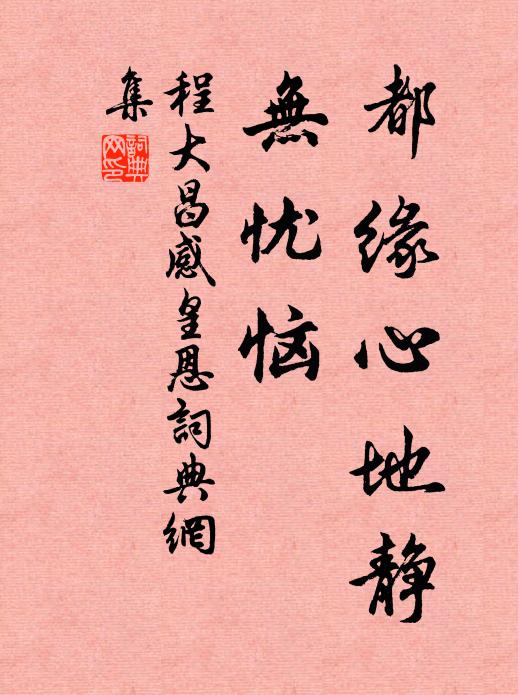 都缘心地静
無忧恼
程大昌感皇恩詞典網
集
詞典
网印